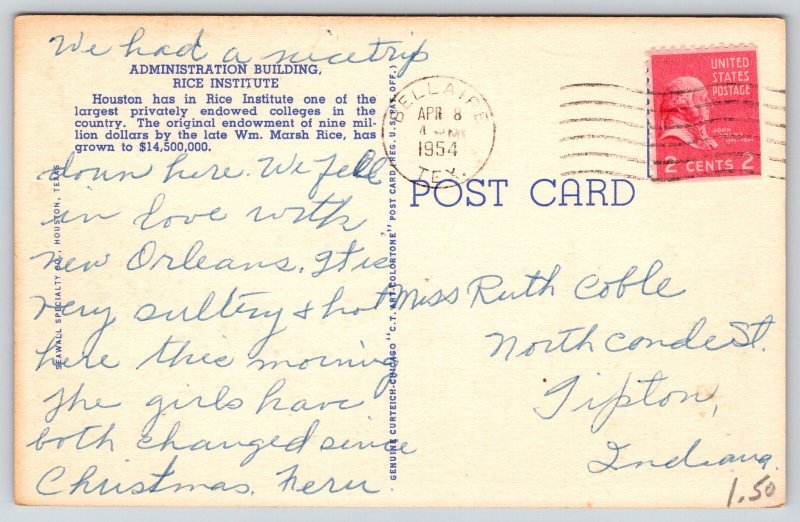 We had a nice trip
ADMINISTRATION BUILDING,
RICE INSTITUTE
Houston has in Rice Institute one of the
largest privately endowed colleges in the
country. The original endowment of nine mil-
lion dollars by the late Wm. Marsh Rice, has
grown to $14,500,000.
down here. We fell
in love with
New Orleans. It is
very sultry & hot
here this morning
The girls have
both changed since
Christmas.
SEAWALL SPECIALTY CO., HOUSTON, TEXAS
GENUINE CURTEICH-CHICAGO "C.T. ART-COLORTONE" POST CARD (REG. U.S. PAT. OFF.)
BELLAIRE
APR 8
4 PM
1954
TEX.
UNITED
STATES
POSTAGE
JOHN
2 CENTS 2
POST CARD
Miss Ruth Coble
North Conde St.
Tipton,
Indiana.
1.50